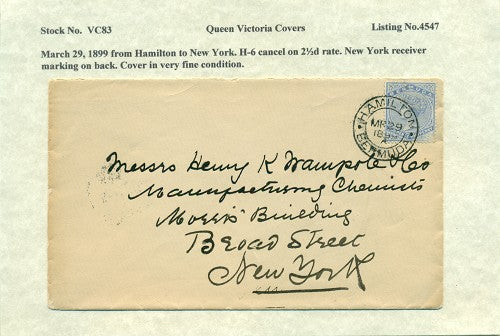 Stock No. VC83 Queen Victoria Covers Listing No.4547
March 29, 1899 from Hamilton to New York. H-6 cancel on 2½d rate. New York receiver
marking on back. Cover in very fine condition.
HAMILTON
MR 29
BERMUDA
Messrs Henry K Wampole & Co
Manufacturing Chemists
Morris Building
Broad Street
New York